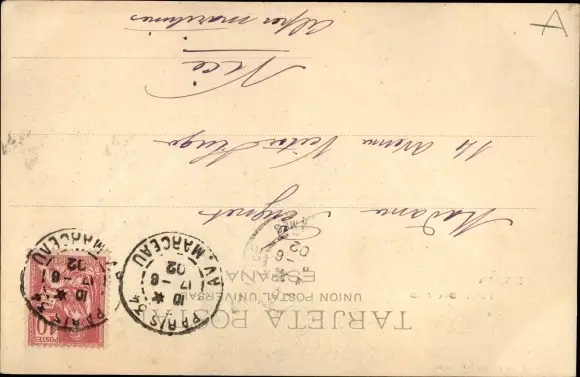 TARJETA POSTAL
UNION POSTAL UNIVERSAL
ESPAÑA
PARIS
16
17 - 6
02
AV. MARCEAU
PARIS
16
17 - 6
02
AV. MARCEAU
6
02
10
POSTES
Madame
14 Avenue Victor Hugo
Nice
Alpes maritimes
A